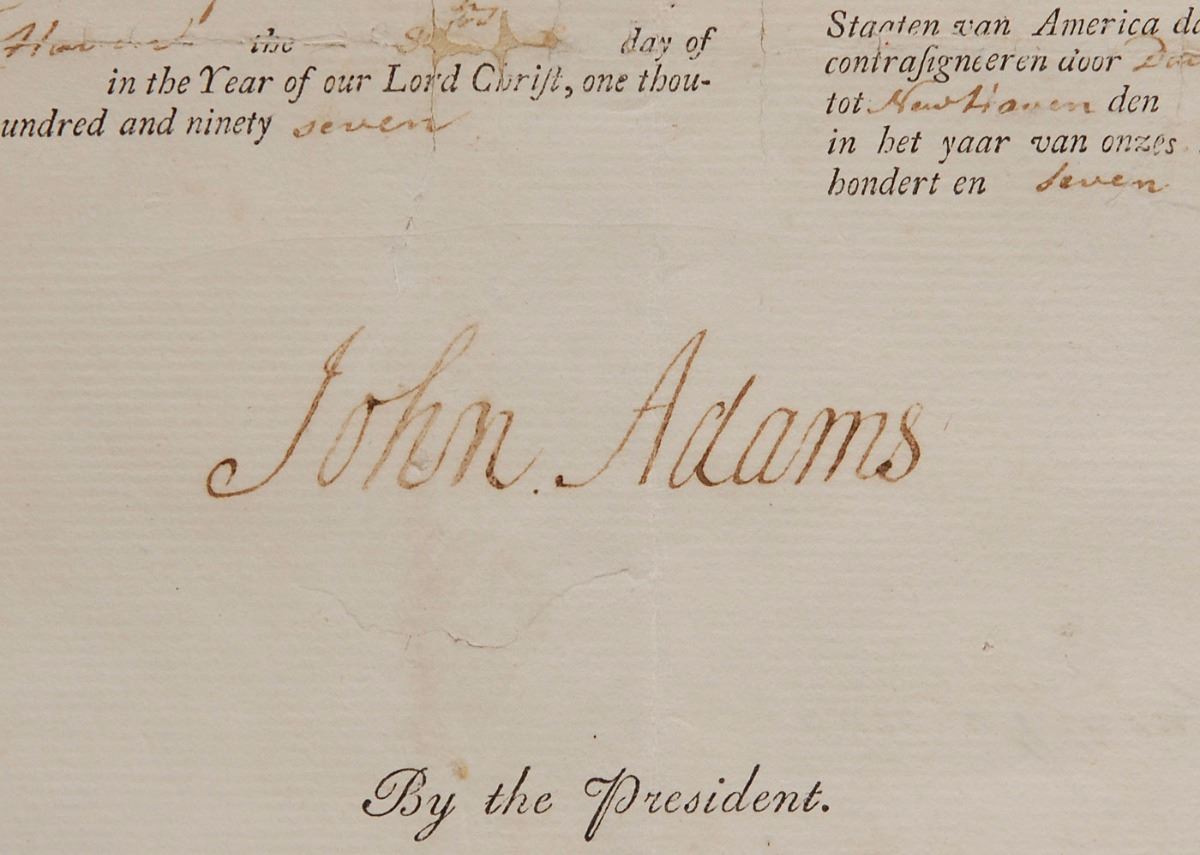 Haven the day of
in the Year of our Lord Chriſt, one thou-
undred and ninety seven
Staaten van America da
contraſigneeren door
tot NewHaven den
in het yaar van onzes
hondert en seven
John Adams
By the President.